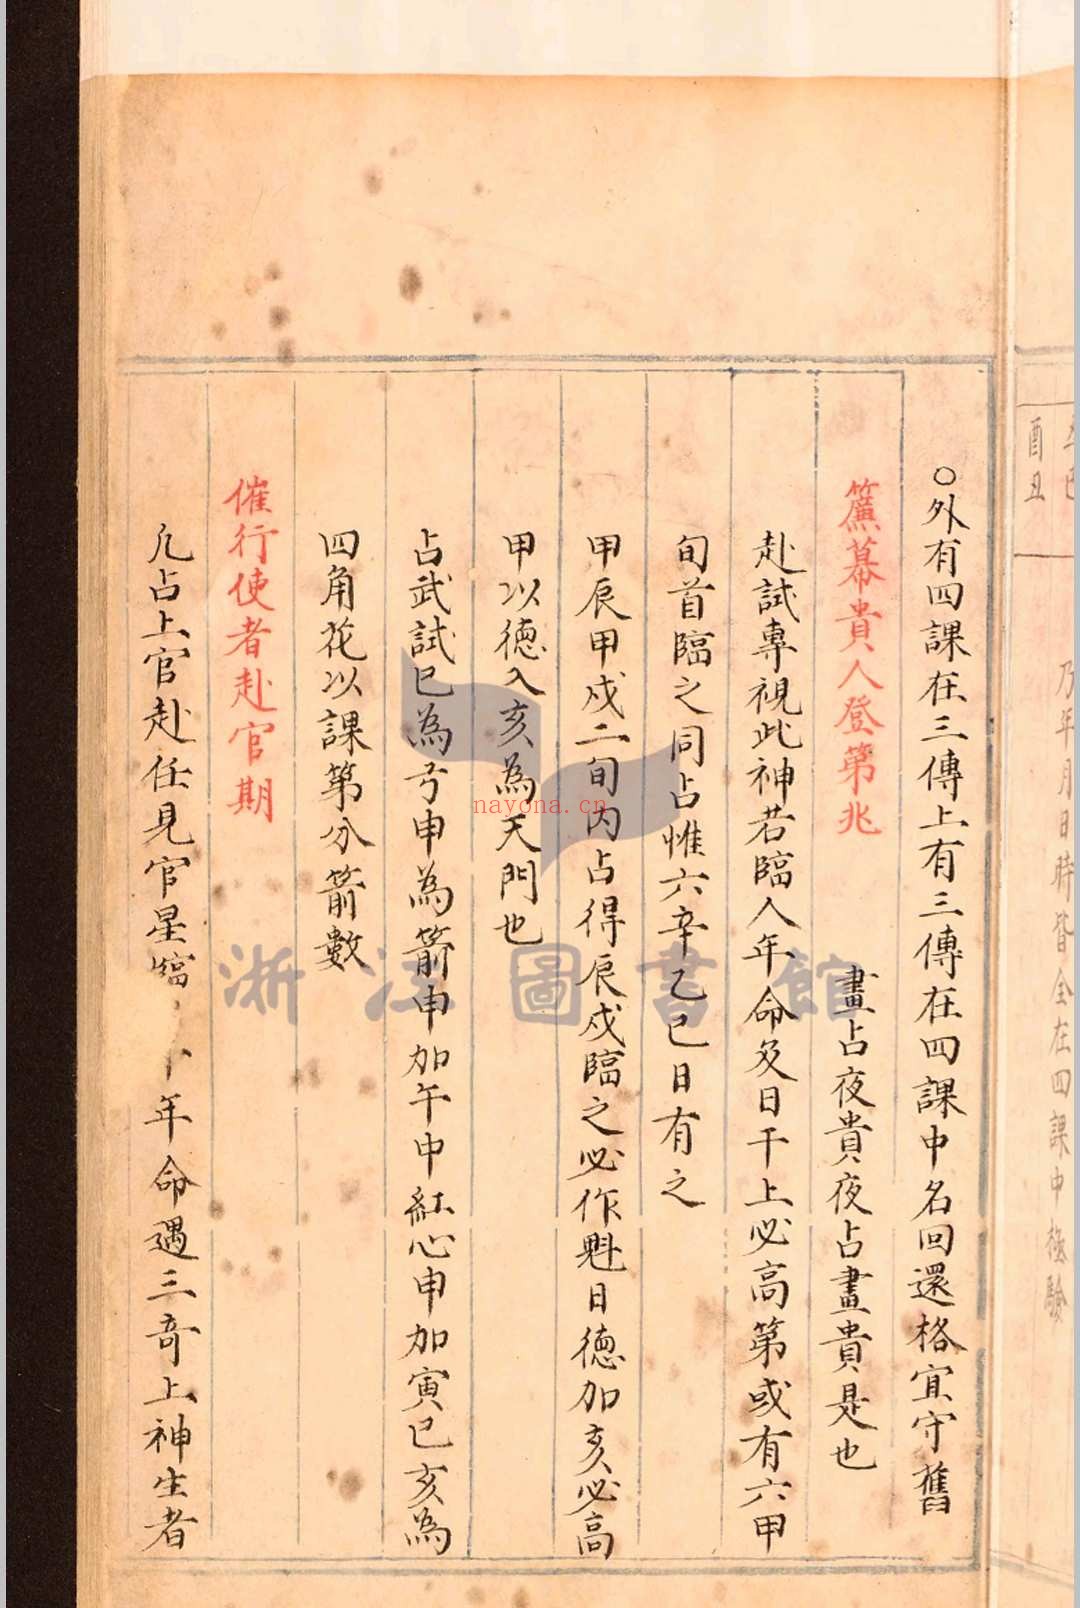 ○外有四課在三傳上有三傳在四課中名回還格宜守舊
簾幕貴人登第兆
晝占夜貴夜占晝貴是也
赴試專視此神若臨人年命及日干上必高第或有六甲
旬首臨之同占惟六辛乙巳日有之
甲辰甲戍二旬内占得辰戍臨之必作魁日德加亥必高
甲以德入亥為天門也
占武試巳為弓申為箭申加午中紅心申加寅巳亥為
四角花以課第分箭數
催行使者赴官期
凡占上官赴任見官星臨年命遇三奇上神生者
酉丑
年月日時皆全在四課中極驗
浙江圖書館
nayona.cn